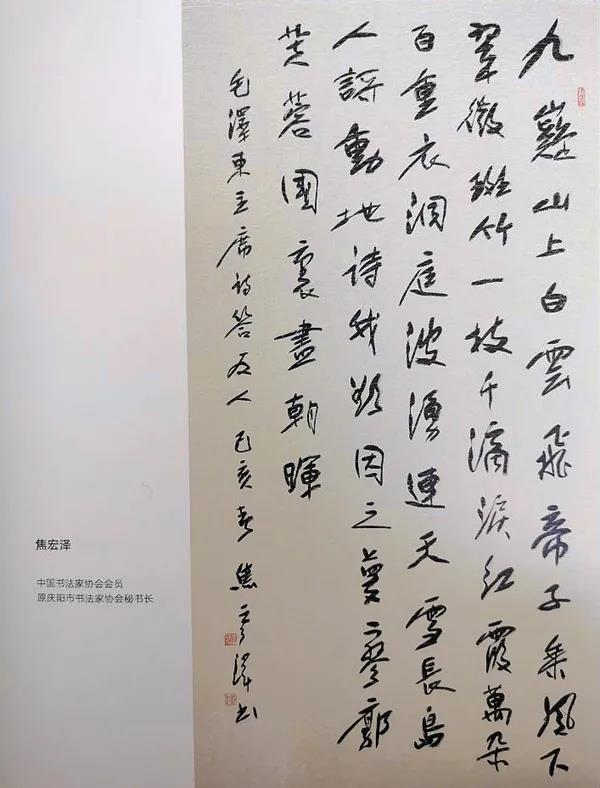 九嶷山上白雲飛帝子乘風下
翠微斑竹一枝千滴淚紅霞萬朵
百重衣洞庭波湧連天雪長島
人謌動地詩我欲因之夢寥廓
芙蓉國裏盡朝暉
毛澤東主席詩答友人 己亥春 焦宏澤书
焦宏泽
中国书法家协会会员
原庆阳市书法家协会秘书长